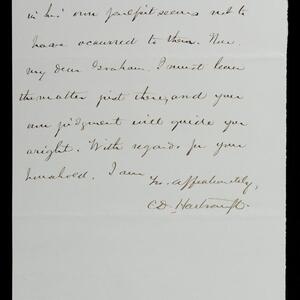 in his own pulpit seems not to
have occurred to them. Now
my dear Graham. I must leave
the matter just there, and your
own judgment will guide you
aright. With regards for your
household. I am
Yrs. affectionately,
C.D. Hartranft.